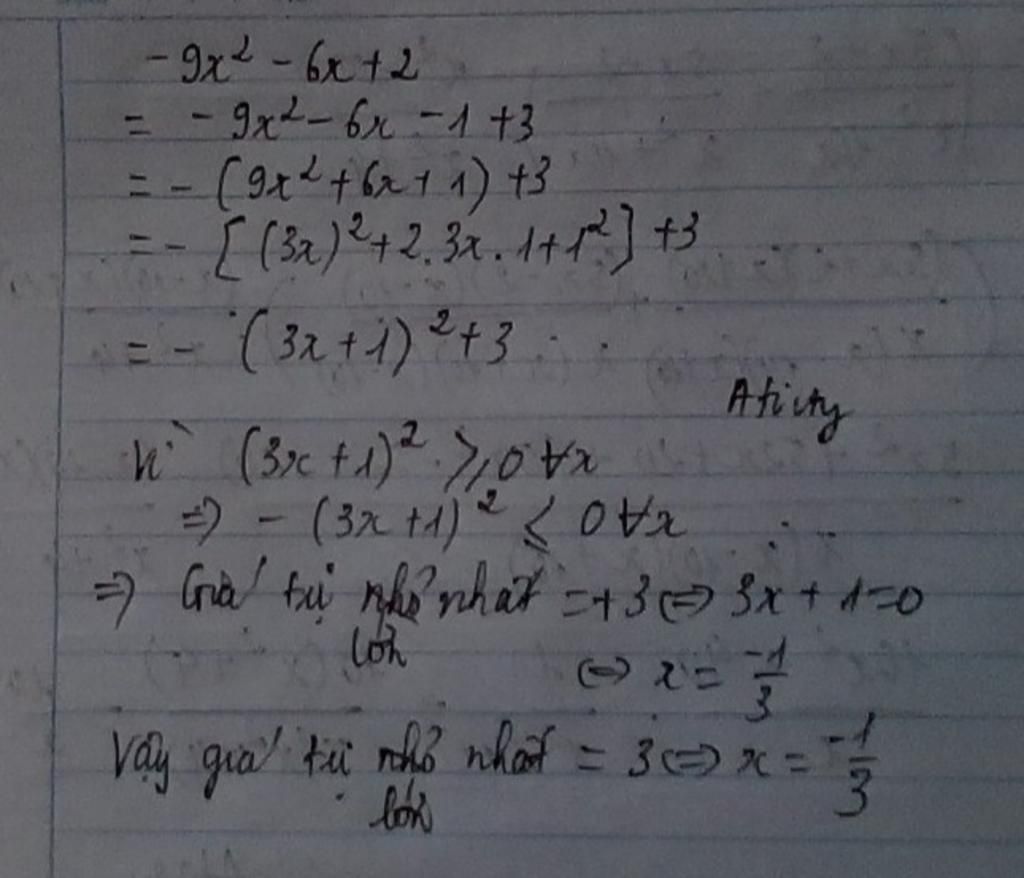 -9x² - 6x + 2
= -9x² - 6x - 1 + 3
= - (9x² + 6x + 1) + 3
= - [(3x)² + 2.3x.1 + 1²] + 3
= - (3x + 1)² + 3
Aficty
Vì (3x + 1)² ⩾ 0 ∀x
=> - (3x + 1)² ⩽ 0 ∀x
=> Giá trị nhỏ nhất = +3 <=> 3x + 1 = 0
lớn
<=> x = -1/3
Vậy giá trị nhỏ nhất = 3 <=> x = -1/3
lớn